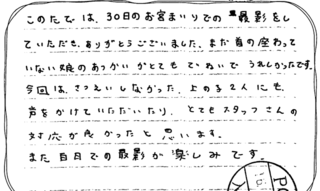 このたびは、30日のお宮まいりでの撮影をし
ていただき、ありがとうございました。まだ首の座わって
いない娘のあつかいがとても ていねいで うれしかったです。
今回は、さつえいしなかった、上の子2人にも、
声をかけていただいたり、とてもスタッフさんの
対応が良かったと 思います。
また 百日での撮影が 楽しみ です。